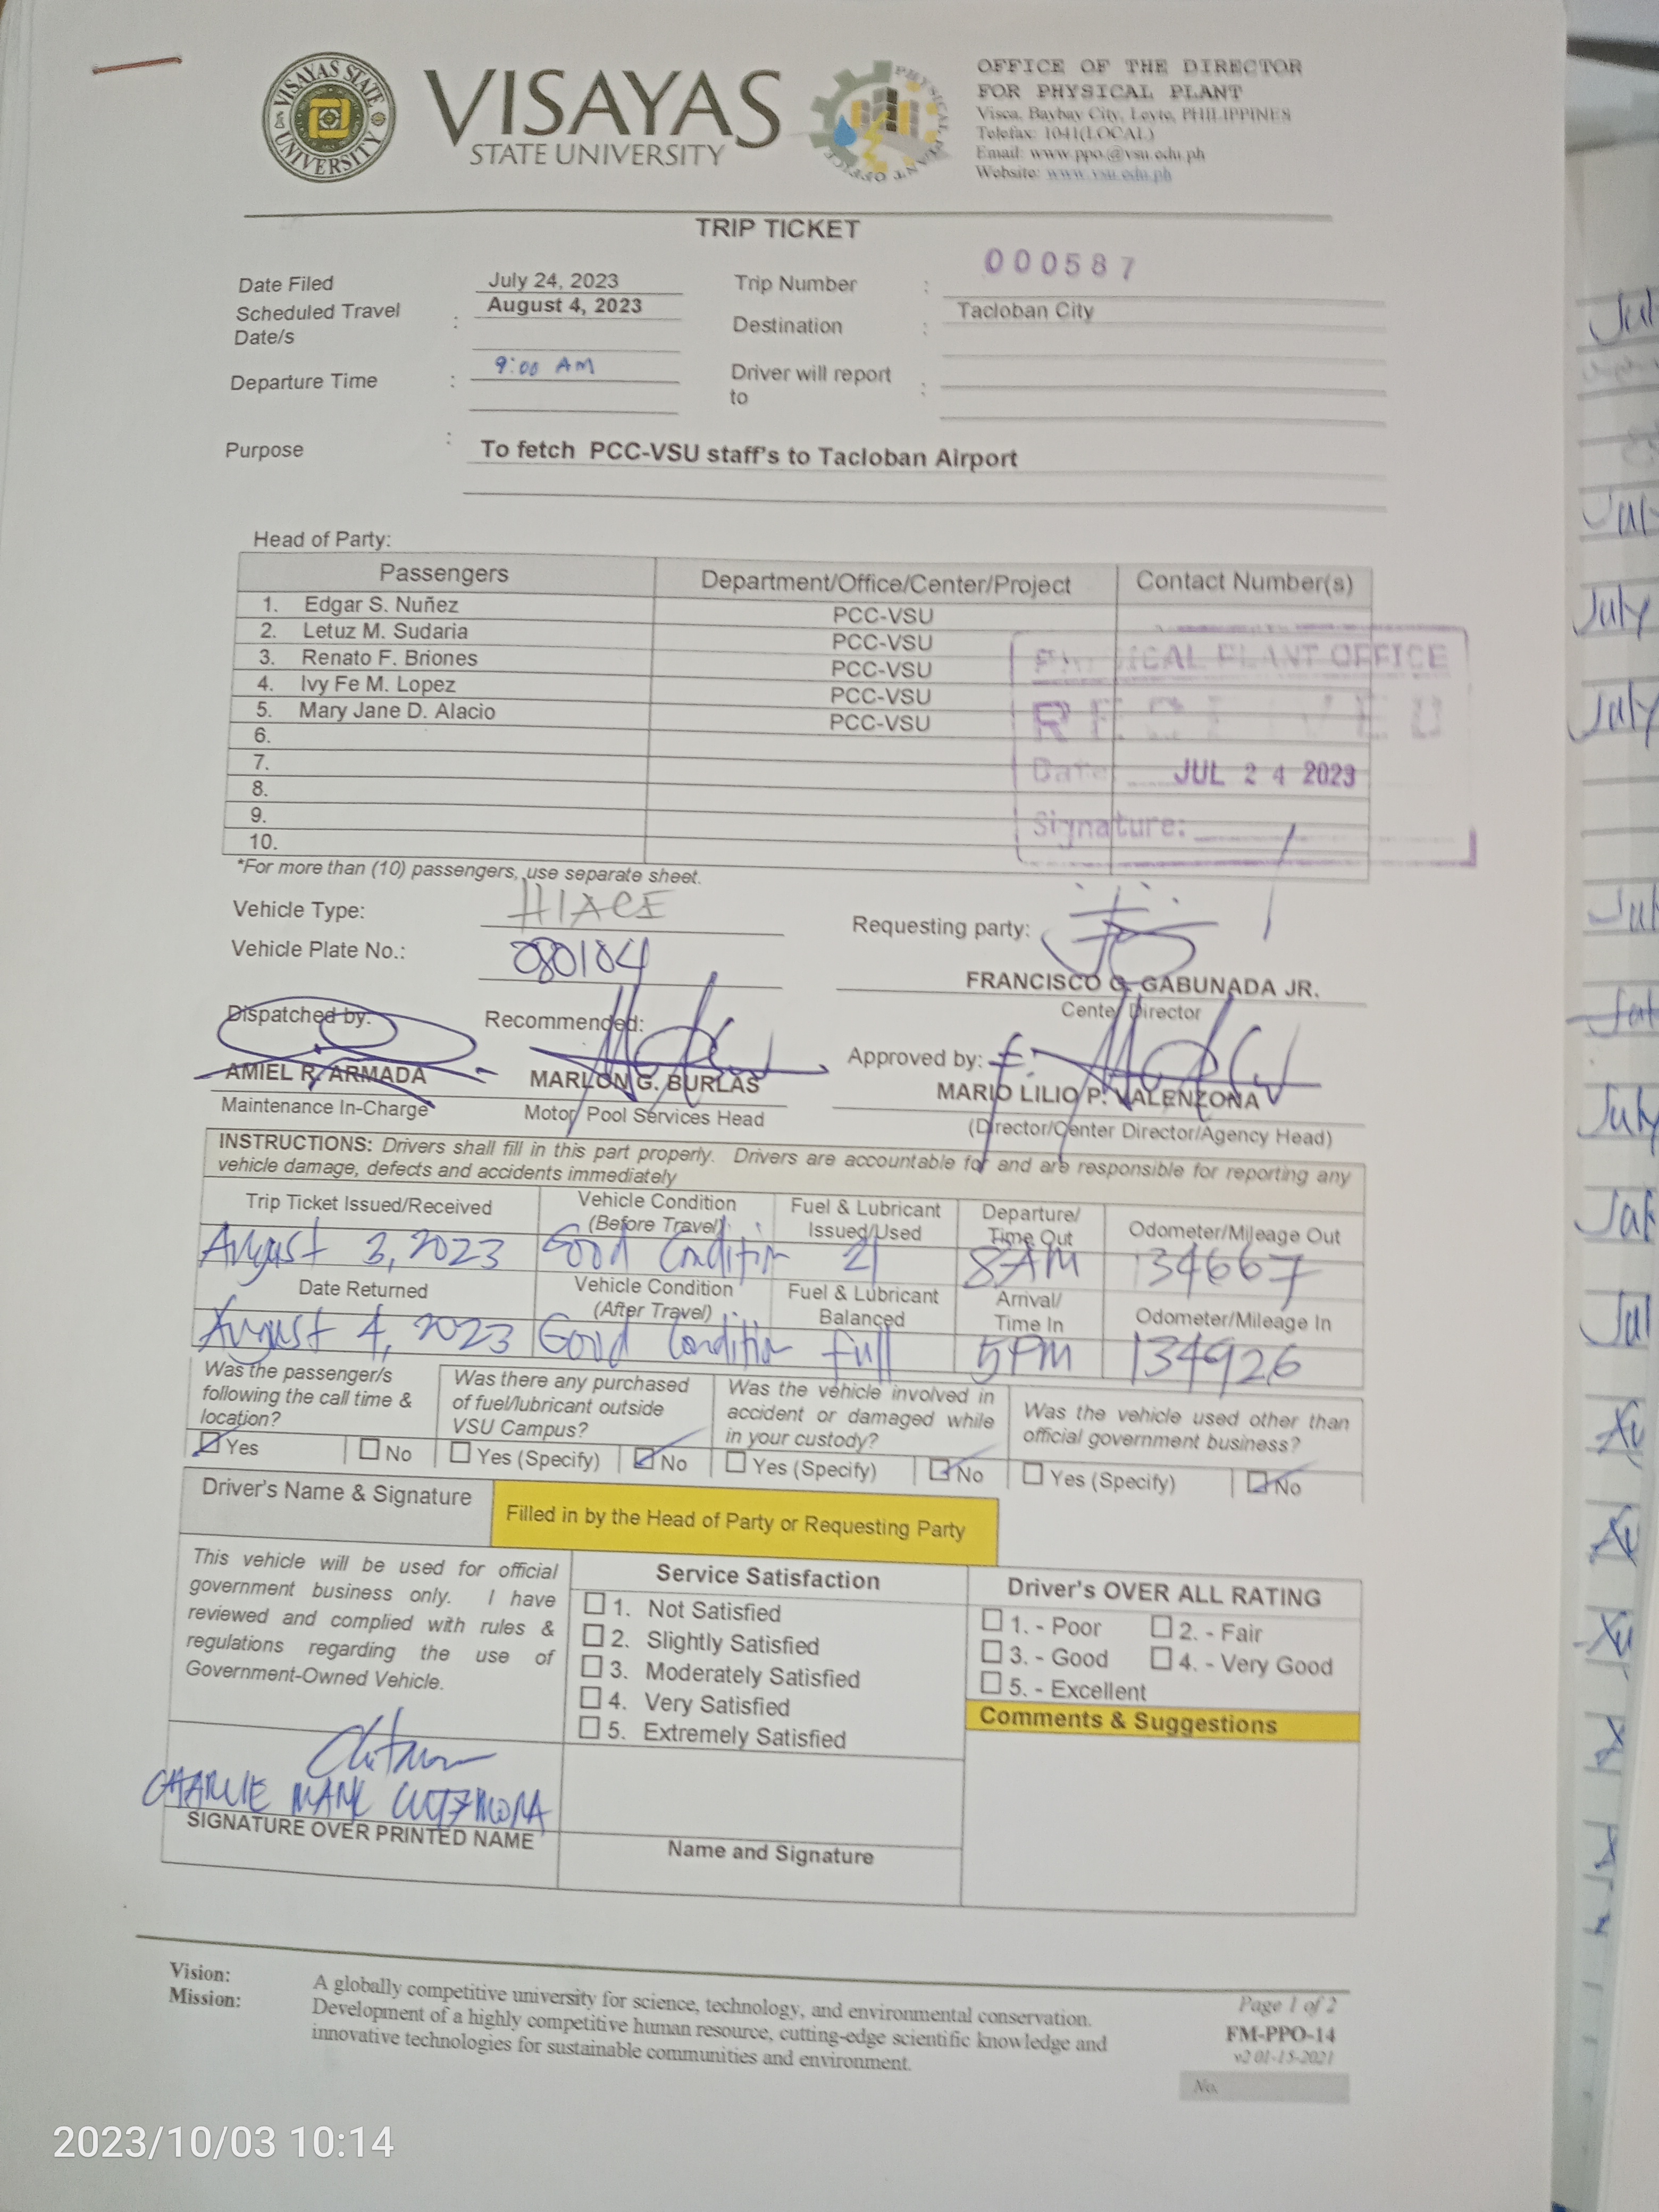 VISAYAS STATE UNIVERSITY
VISAYAS
STATE UNIVERSITY
PHYSICAL PLANT OFFICE
OFFICE OF THE DIRECTOR
FOR PHYSICAL PLANT
Visca, Baybay City, Leyte, PHILIPPINES
Telefax: 1041(LOCAL)
Email: www.ppo.@vsu.edu.ph
Website: www.vsu.edu.ph
TRIP TICKET
Date Filed July 24, 2023 Trip Number : 000587
Scheduled Travel Date/s : August 4, 2023 Destination : Tacloban City
Departure Time : 9:00 AM Driver will report to :
Purpose : To fetch PCC-VSU staff's to Tacloban Airport
Head of Party:
Passengers Department/Office/Center/Project Contact Number(s)
1. Edgar S. Nuñez PCC-VSU
2. Letuz M. Sudaria PCC-VSU
3. Renato F. Briones PCC-VSU
4. Ivy Fe M. Lopez PCC-VSU
5. Mary Jane D. Alacio PCC-VSU
6.
7.
8.
9.
10.
PHYSICAL PLANT OFFICE
RECEIVED
Date JUL 24 2023
Signature:
*For more than (10) passengers, use separate sheet.
Vehicle Type: HIACE
Vehicle Plate No.: 080184
Requesting party:
FRANCISCO G. GABUNADA JR.
Center Director
Dispatched by: Recommended: Approved by:
AMIEL R. ARMADA MARLON G. BURLAS MARIO LILIO P. VALENZONA
Maintenance In-Charge Motor Pool Services Head (Director/Center Director/Agency Head)
INSTRUCTIONS: Drivers shall fill in this part properly. Drivers are accountable for and are responsible for reporting any
vehicle damage, defects and accidents immediately
Trip Ticket Issued/Received Vehicle Condition (Before Travel) Fuel & Lubricant Issued/Used Departure/ Time Out Odometer/Mileage Out
August 3, 2023 Good Condition 21 8AM 134667
Date Returned Vehicle Condition (After Travel) Fuel & Lubricant Balanced Arrival/ Time In Odometer/Mileage In
August 4, 2023 Good Condition full 5PM 134926
Was the passenger/s following the call time & location? Was there any purchased of fuel/lubricant outside VSU Campus? Was the vehicle involved in accident or damaged while in your custody? Was the vehicle used other than official government business?
Yes No Yes (Specify) No Yes (Specify) No Yes (Specify) No
Driver's Name & Signature Filled in by the Head of Party or Requesting Party
This vehicle will be used for official
government business only. I have
reviewed and complied with rules &
regulations regarding the use of
Government-Owned Vehicle.
CHARLIE MARK
SIGNATURE OVER PRINTED NAME
Service Satisfaction
1. Not Satisfied
2. Slightly Satisfied
3. Moderately Satisfied
4. Very Satisfied
5. Extremely Satisfied
Name and Signature
Driver's OVER ALL RATING
1. - Poor 2. - Fair
3. - Good 4. - Very Good
5. - Excellent
Comments & Suggestions
Vision: A globally competitive university for science, technology, and environmental conservation.
Mission: Development of a highly competitive human resource, cutting-edge scientific knowledge and
innovative technologies for sustainable communities and environment.
Page 1 of 2
FM-PPO-14
v2 01-15-2021
No.
July
July
July
2023/10/03 10:14